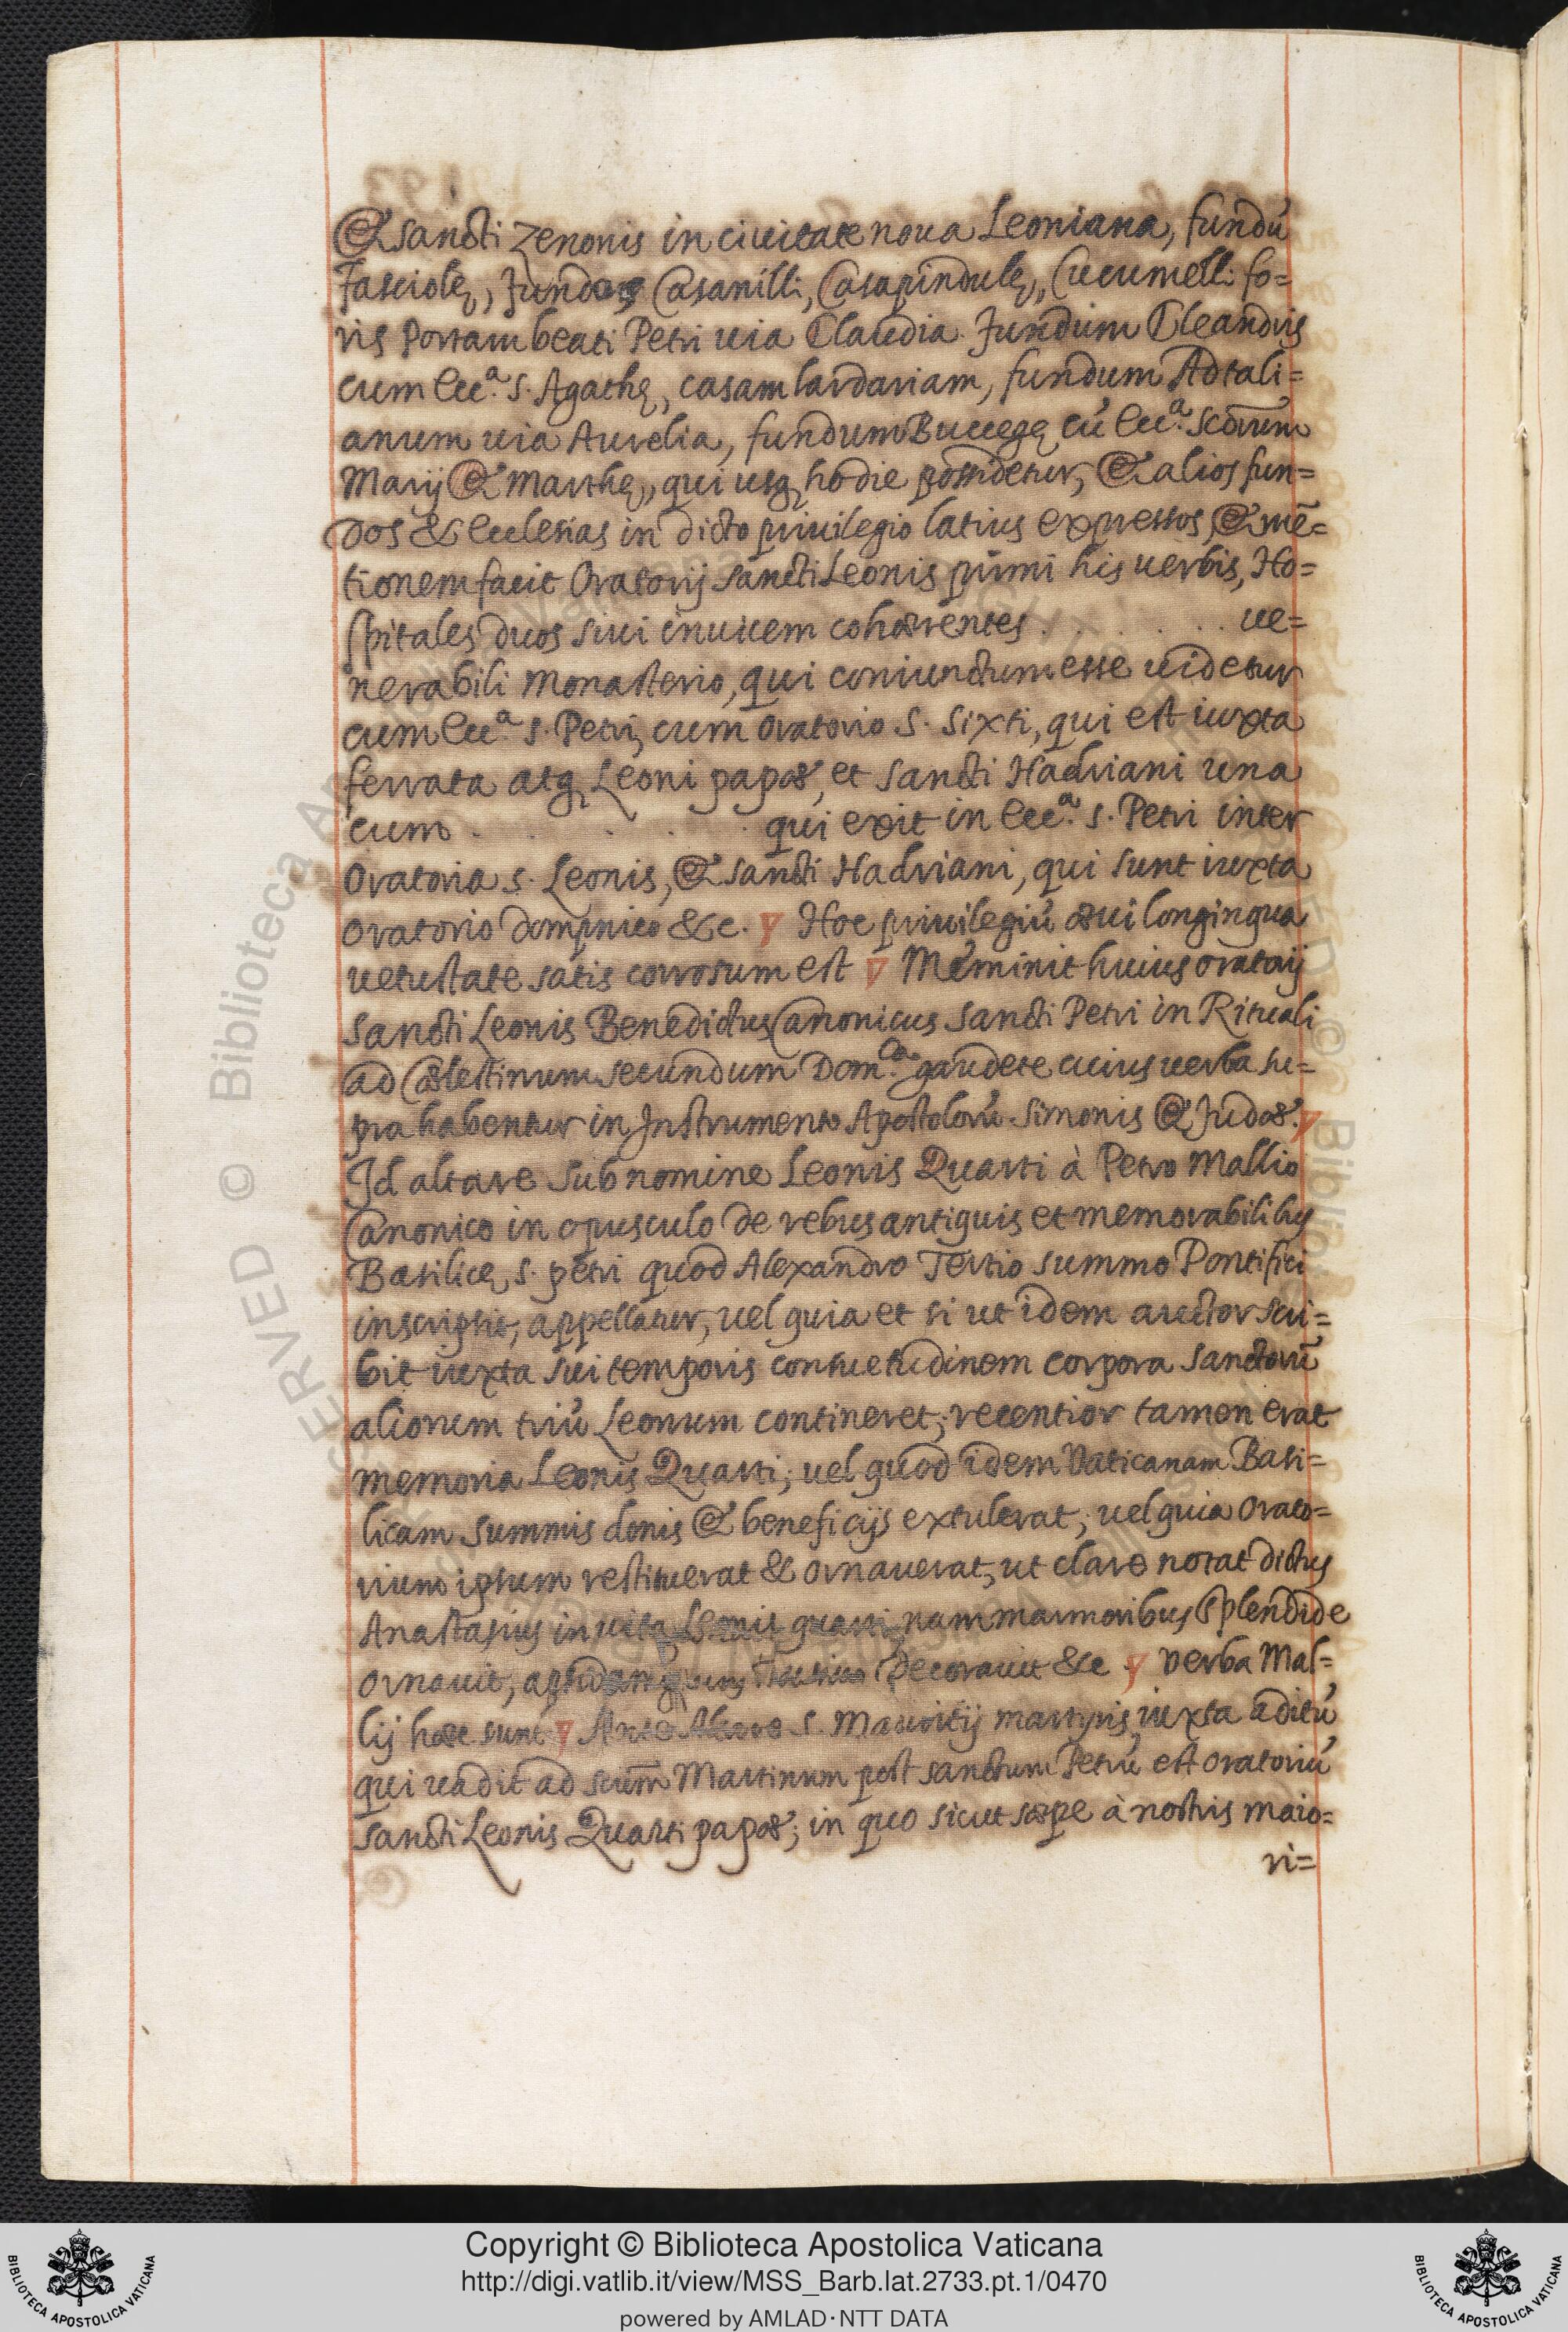 & sancti Zenonis in ciuitate noua Leoniana, fundū
Fasciolę, fundos Casanilli, Casapindulę, Cucumelli fo=
ris Portam beati Petri uia Claudia. Fundum Cleandris
cum Ecc.ª S. Agathę, casam lardariam, fundum Ad tali=
anum uia Aurelia, fundum Buccege cū Ecc.ª Scōrum
Marij & Marthę, qui usq hodie possidetur, & alios fun=
dos & Ecclesias in dicto priuilegio latius expressos, & mē=
tionem facit Oratorij sancti Leonis primi his uerbis, Ho=
spitales duos siui inuicem cohærentes . . . . . . . ue=
nerabili monasterio, qui coniunctum esse uidetur
cum Ecc.ª S. Petri, cum oratorio S. Sixti, qui est iuxta
ferrata atq Leoni papæ, et Sancti Hadriani una
cum . . . . . . qui exit in Ecc.ª S. Petri inter
Oratoria S. Leonis, & sancti Hadriani, qui sunt iuxta
oratorio dompnico &c. Hoc priuilegiū æui longinqua
uetustate satis corrosum est Meminit huius oratorij
sancti Leonis Benedictus Canonicus Sancti Petri in Rituali
ad Cælestinum secundum Dom.ca gaudete cuius uerba su=
pra habentur in Instrumento Apostolorū Simonis & Judæ.
Id altare sub nomine Leonis Quarti à Petro Mallio
Canonico in opusculo de rebus antiquis et memorabilibus
Basilicę S. Petri quod Alexandro Tertio summo Pontifici
inscripsit, appellatur, uel quia et si ut idem auctor scri=
bit iuxta sui temporis consuetudinem corpora sanctorū
aliorum triū Leonum contineret, recentior tamen erat
memoria Leonis Quarti; uel quod idem Vaticanam Basi=
licam summis donis & beneficijs extulerat; uel quia orato=
rium ipsum restituerat & ornauerat, ut clare notat dictus
Anastasius in uita Leonis quarti nam marmoribus splendide
ornauit, decorauit &c. Verba Mal=
lij hæc sunt Ante Altare S. Mauritij martyris, iuxta aditū,
qui uadit ad scūm Martinum post sanctum Petrū est oratoriū
sancti Leonis Quarti papæ; in quo sicut sæpe à nostris maio=
ri=
Copyright © Biblioteca Apostolica Vaticana
http://digi.vatlib.it/view/MSS_Barb.lat.2733.pt.1/0470
powered by AMLAD·NTT DATA
BIBLIOTECA APOSTOLICA VATICANA
BIBLIOTECA APOSTOLICA VATICANA